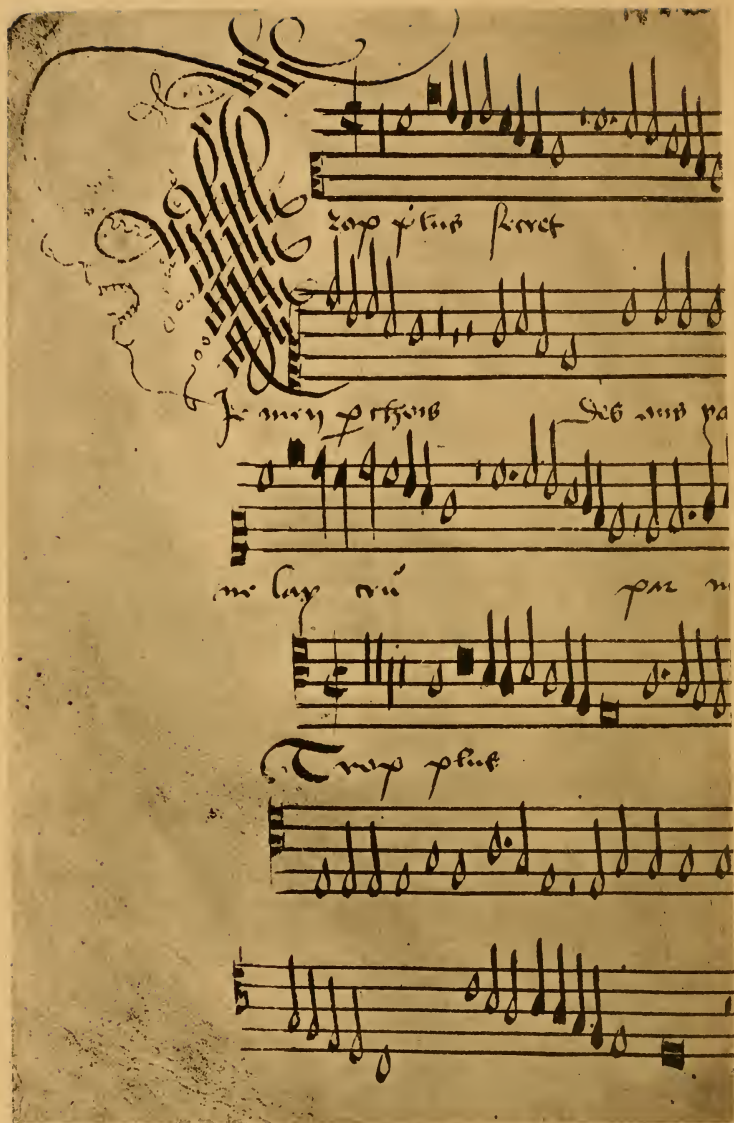 Trop plus secret
Je men pchois des mis pa
ne lay cru par m
Trop plus